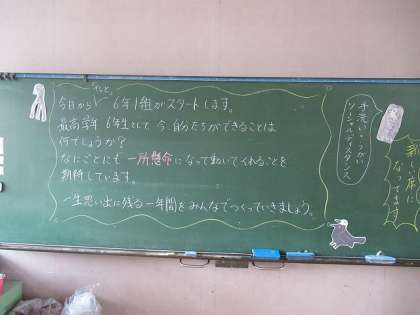 やっと。
今日から 6年1組がスタートします。
最高学年 6年生として 今、自分たちができることは
何でしょうか？
なにごとにも 一所懸命になって動いてくれることを
期待しています。
一生思い出に残る一年間をみんなでつくっていきましょう。
手洗い・うがい
ソーシャルディスタンス
新しい床に
なってます